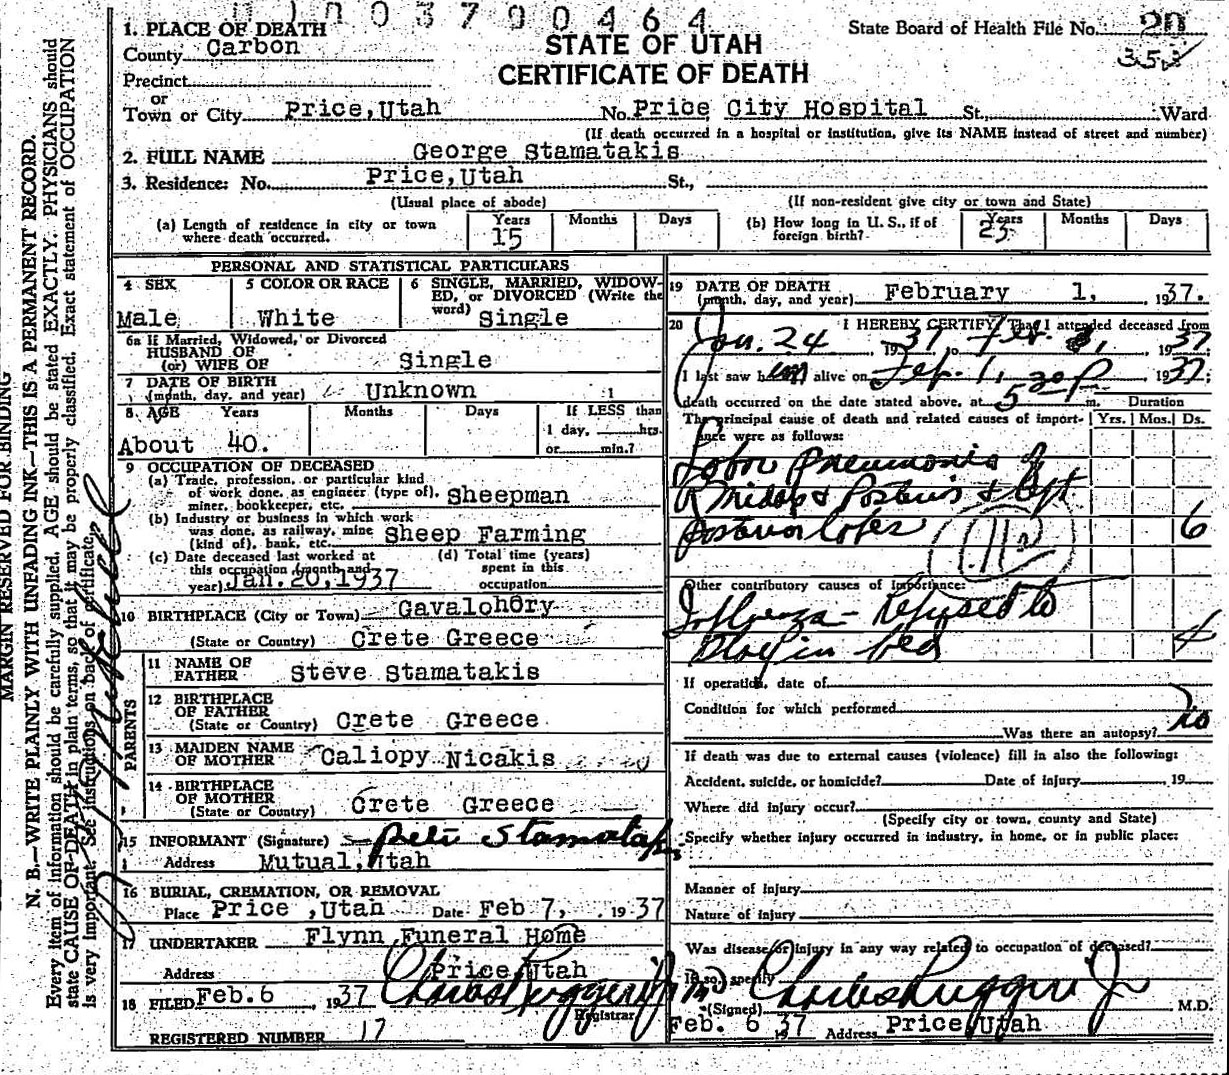 0 1 0 0 3 7 0 0 4 6 4
1. PLACE OF DEATH
County Carbon
Precinct
or
Town or City Price, Utah No. Price City Hospital St., Ward
(If death occurred in a hospital or institution, give its NAME instead of street and number)
STATE OF UTAH
CERTIFICATE OF DEATH
State Board of Health File No. 20
2. FULL NAME George Stamatakis
3. Residence: No. Price, Utah St.,
(Usual place of abode) (If non-resident give city or town and State)
(a) Length of residence in city or town where death occurred. Years 15 Months Days
(b) How long in U. S., if of foreign birth? Years 23 Months Days
PERSONAL AND STATISTICAL PARTICULARS
4 SEX Male
5 COLOR OR RACE White
6 SINGLE, MARRIED, WIDOWED, or DIVORCED (Write the word) Single
6a If Married, Widowed, or Divorced
HUSBAND OF
(or) WIFE OF Single
7 DATE OF BIRTH
(month, day, and year) Unknown
8 AGE Years Months Days If LESS than
1 day, hrs.
or min.?
About 40.
9 OCCUPATION OF DECEASED
(a) Trade, profession, or particular kind
of work done, as engineer (type of),
miner, bookkeeper, etc. Sheepman
(b) Industry or business in which work
was done, as railway, mine
(kind of), bank, etc. Sheep Farming
(c) Date deceased last worked at
this occupation (month and
year) Jan. 20, 1937
(d) Total time (years)
spent in this
occupation
10 BIRTHPLACE (City or Town) Gavalohory
(State or Country) Crete Greece
PARENTS
11 NAME OF
FATHER Steve Stamatakis
12 BIRTHPLACE
OF FATHER
(State or Country) Crete Greece
13 MAIDEN NAME
OF MOTHER Caliopy Nicakis
14 BIRTHPLACE
OF MOTHER
(State or Country) Crete Greece
15 INFORMANT (Signature) Stamatakis
Address Mutual, Utah
16 BURIAL, CREMATION, OR REMOVAL
Place Price, Utah Date Feb 7, 1937
17 UNDERTAKER Flynn Funeral Home
Address Price, Utah
18 FILED Feb. 6 1937 Charles Ruggeri Jr MD
Registrar
REGISTERED NUMBER 17
19 DATE OF DEATH
(month, day, and year) February 1, 1937.
20 I HEREBY CERTIFY, That I attended deceased from
Jan. 24 1937, to Feb. 1, 1937
I last saw him alive on Feb. 1, 1937;
death occurred on the date stated above, at 5 30 P m. Duration
The principal cause of death and related causes of importance were as follows: Yrs. Mos. Ds.
Lobar Pneumonia of
R Middle & Posterior & left
posterior lobes 6
Other contributory causes of importance:
Influenza - Refused to
stay in bed
If operation, date of
Condition for which performed
Was there an autopsy? no
If death was due to external causes (violence) fill in also the following:
Accident, suicide, or homicide? Date of injury , 19
Where did injury occur?
(Specify city or town, county and State)
Specify whether injury occurred in industry, in home, or in public place:
Manner of injury
Nature of injury
Was disease or injury in any way related to occupation of deceased?
If so, specify
(Signed) Charles Ruggeri Jr M.D.
Feb. 6 37 Address Price, Utah
MARGIN RESERVED FOR BINDING
N. B.—WRITE PLAINLY WITH UNFADING INK—THIS IS A PERMANENT RECORD.
Every item of information should be carefully supplied. AGE should be stated EXACTLY. PHYSICIANS should
state CAUSE OF DEATH in plain terms, so that it may be properly classified. Exact statement of OCCUPATION
is very important. See instructions on back of certificate.